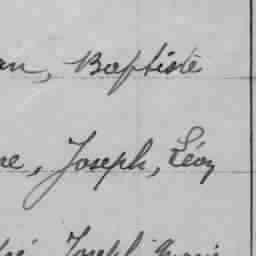 an, Baptiste
ne, Joseph, Léon
Joseph